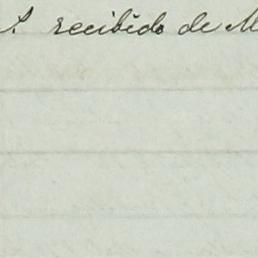 recibido de M